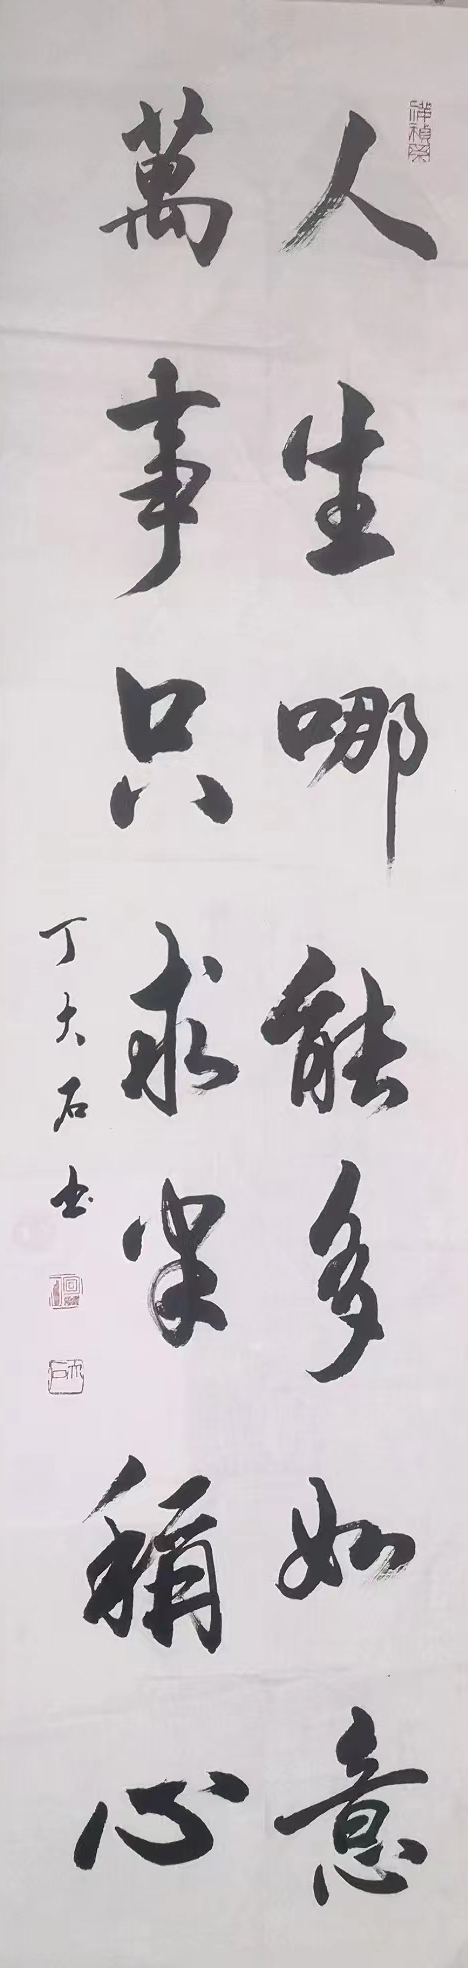 人生哪能多如意
萬事只求半稱心
丁大石书